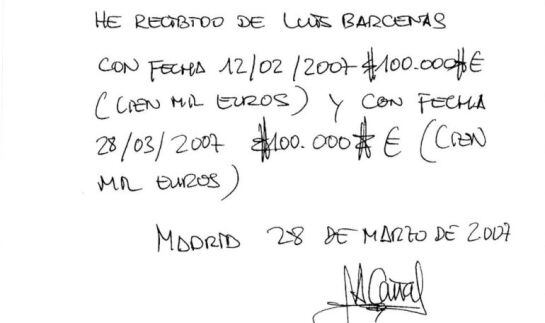 HE RECIBIDO DE LUIS BARCENAS
CON FECHA 12/02/2007 #100.000#€
(CIEN MIL EUROS) Y CON FECHA
28/03/2007 #100.000# € (CIEN
MIL EUROS)
MADRID 28 DE MARZO DE 2007